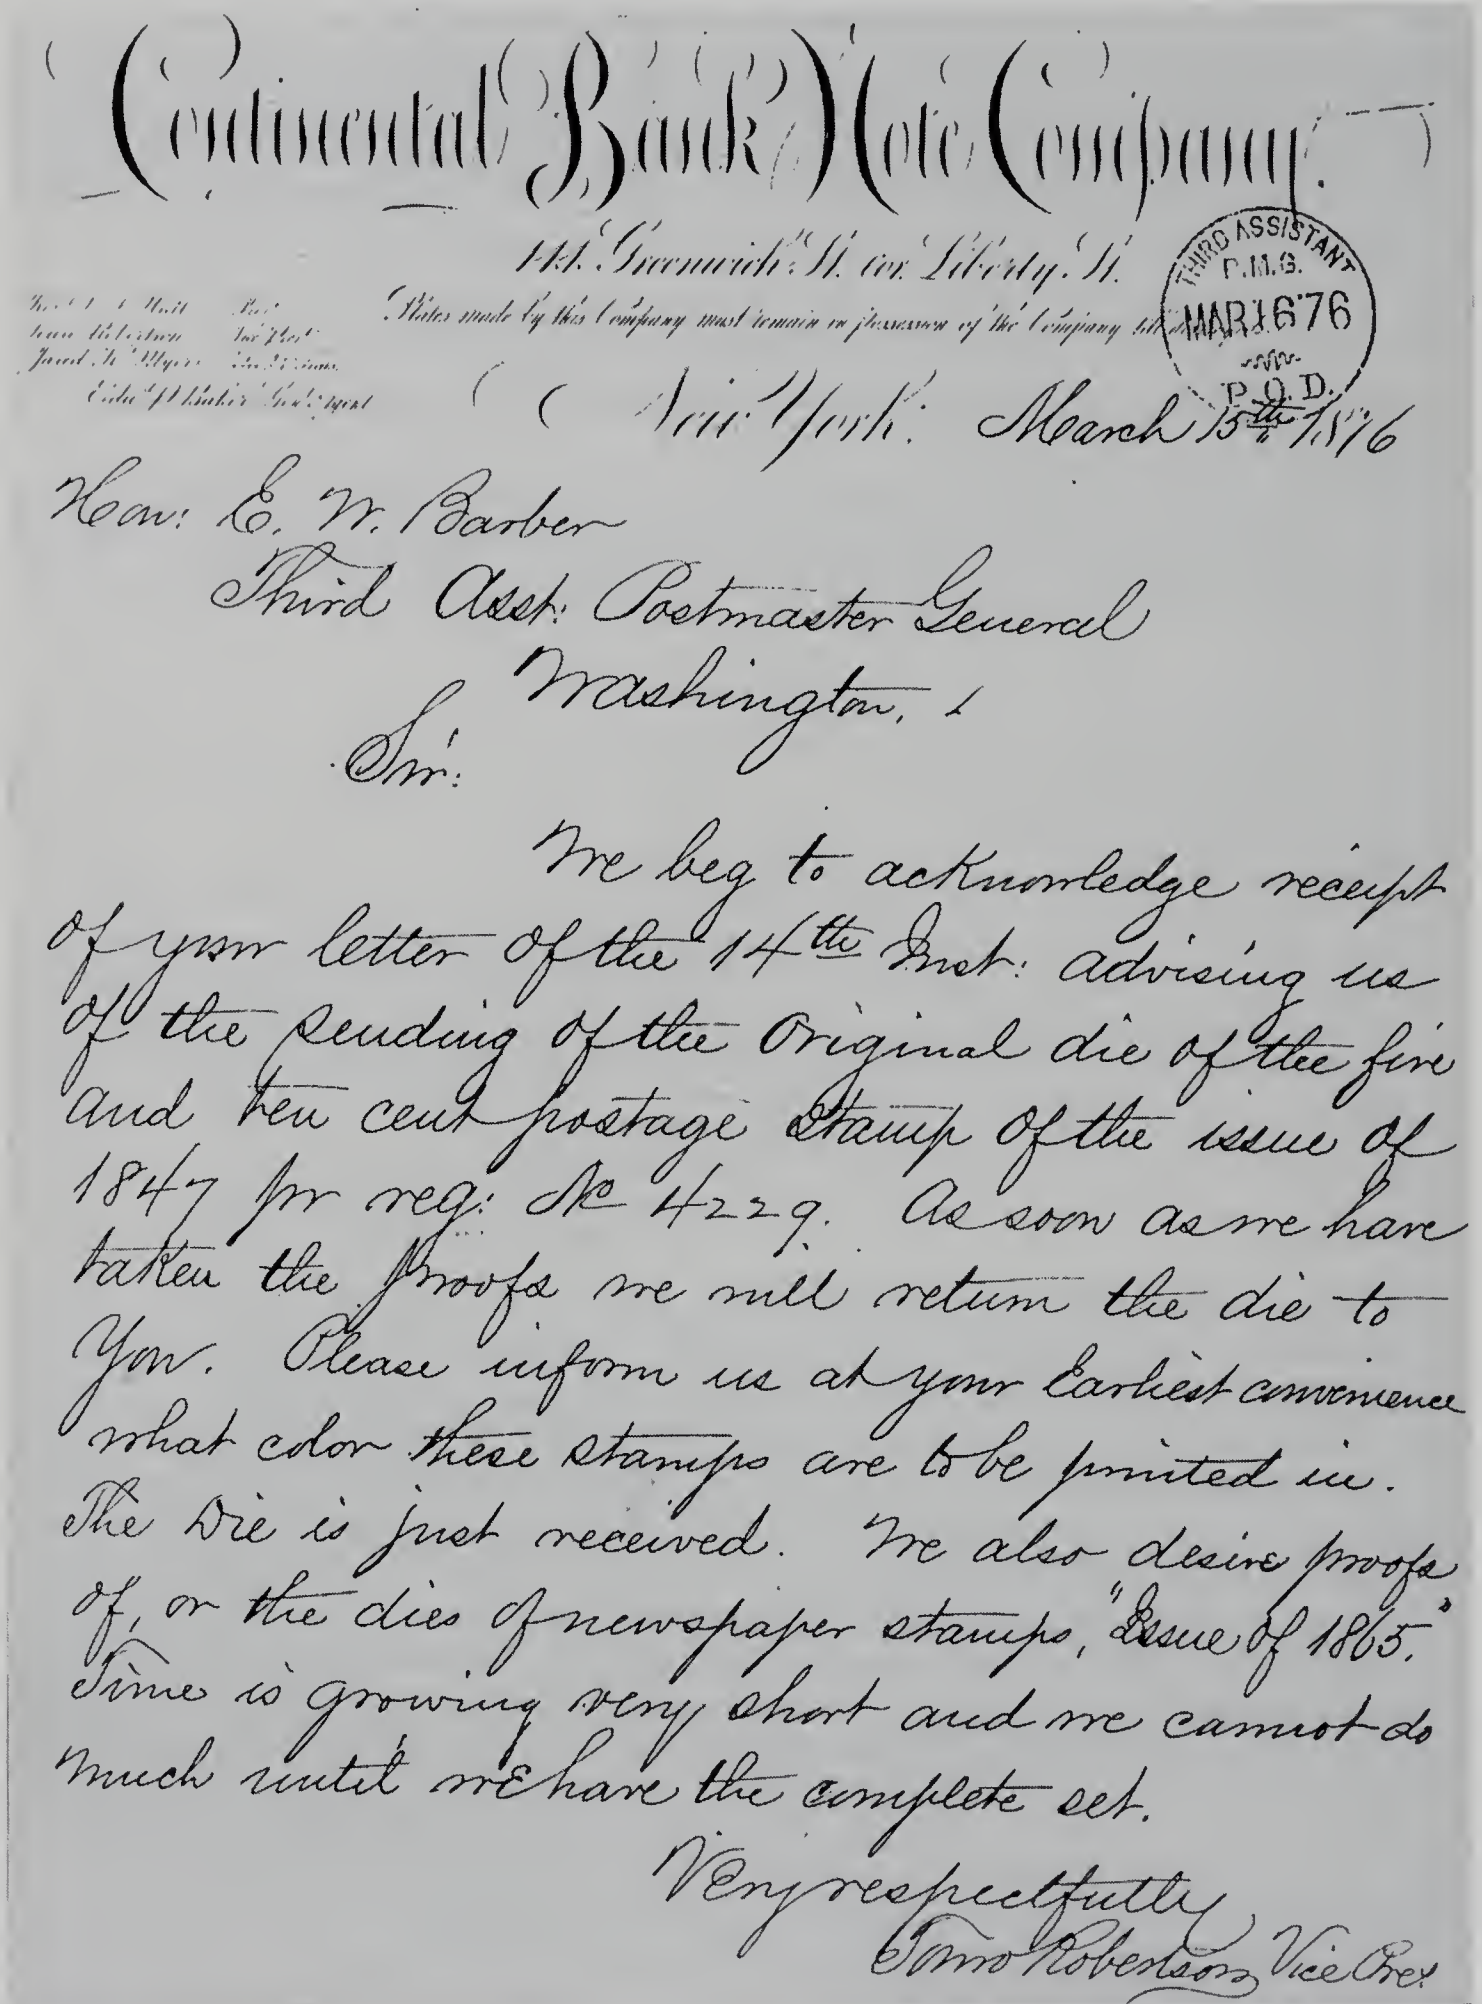 Continental Bank Note Company.
Greenwich St. cor. Liberty St.
Plates made by this Company must remain in possession of the Company
THIRD ASSISTANT
P.M.G.
MAR 16 76
P.O.D.
New York: March 15th 1876
Hon: E. W. Barber
Third Asst: Postmaster General
Washington,
Sir:
We beg to acknowledge receipt
of your letter of the 14th Inst: advising us
of the sending of the Original die of the five
and ten cent postage stamp of the issue of
1847 pr reg: No 4229. As soon as we have
taken the proofs we will return the die to
You. Please inform us at your Earliest convenience
what color these stamps are to be printed in.
The Die is just received. We also desire proofs
of, or the dies of newspaper stamps, "Issue of 1865."
Time is growing very short and we cannot do
much until we have the complete set.
Very respectfully
Robertson Vice Pres.